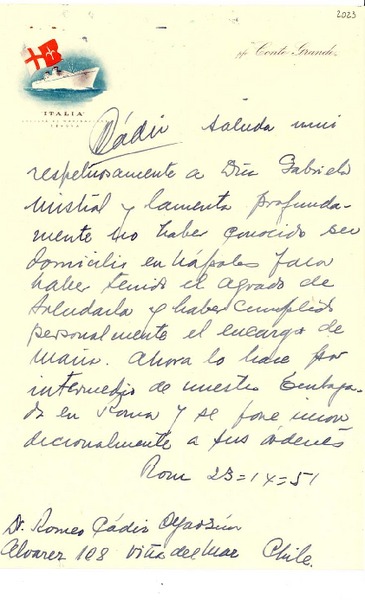 2023
p/fo "Conte Grande"
ITALIA
GENOVA
Cádiz saluda muy
respetuosamente a Dña Gabriela
Mistral y lamenta profunda-
mente no haber conocido su
domicilio en Nápoles para
haber tenido el agrado de
saludarla y haber cumplido
personalmente el encargo de
María. Ahora lo hace por
intermedio de nuestra Embaja-
da en Roma y se pone incon
dicionalmente a sus órdenes
Rom 23=IX=51
Dr. Romeo Cádiz
Alvarez 108 Viña del Mar Chile.